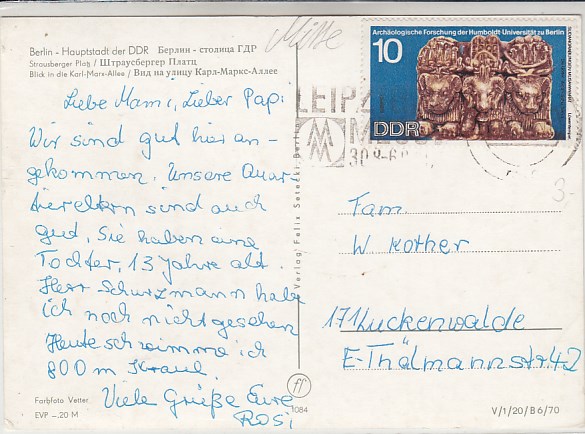 Berlin - Hauptstadt der DDR Берлин - столица ГДР
Strausberger Platz / Штраусбергер Платц
Blick in die Karl-Marx-Allee / Вид на улицу Карл-Маркс-Аллее
Mitte
Archäologische Forschung der Humboldt-Universität zu Berlin
10
DDR
LEIPZI
MM
MESS
30.8-6.
Liebe Mami, Lieber Papi
Wir sind gut hier an-
gekommen. Unsere Quar-
tiereltern sind auch
gut. Sie haben eine
Tochter, 13 Jahre alt.
Herr Schurzmann habe
ich noch nicht gesehen
Heute schwimme ich
800 m Kraul.
Viele Grüße Eure
Rosi
Verlag Felix Setecki Berlin
Fam.
W Kother
171 Luckenwalde
E-Thälmannstr. 42
3-
Farbfoto Vetter
EVP -.20 M
1084
V/1/20/B6/70